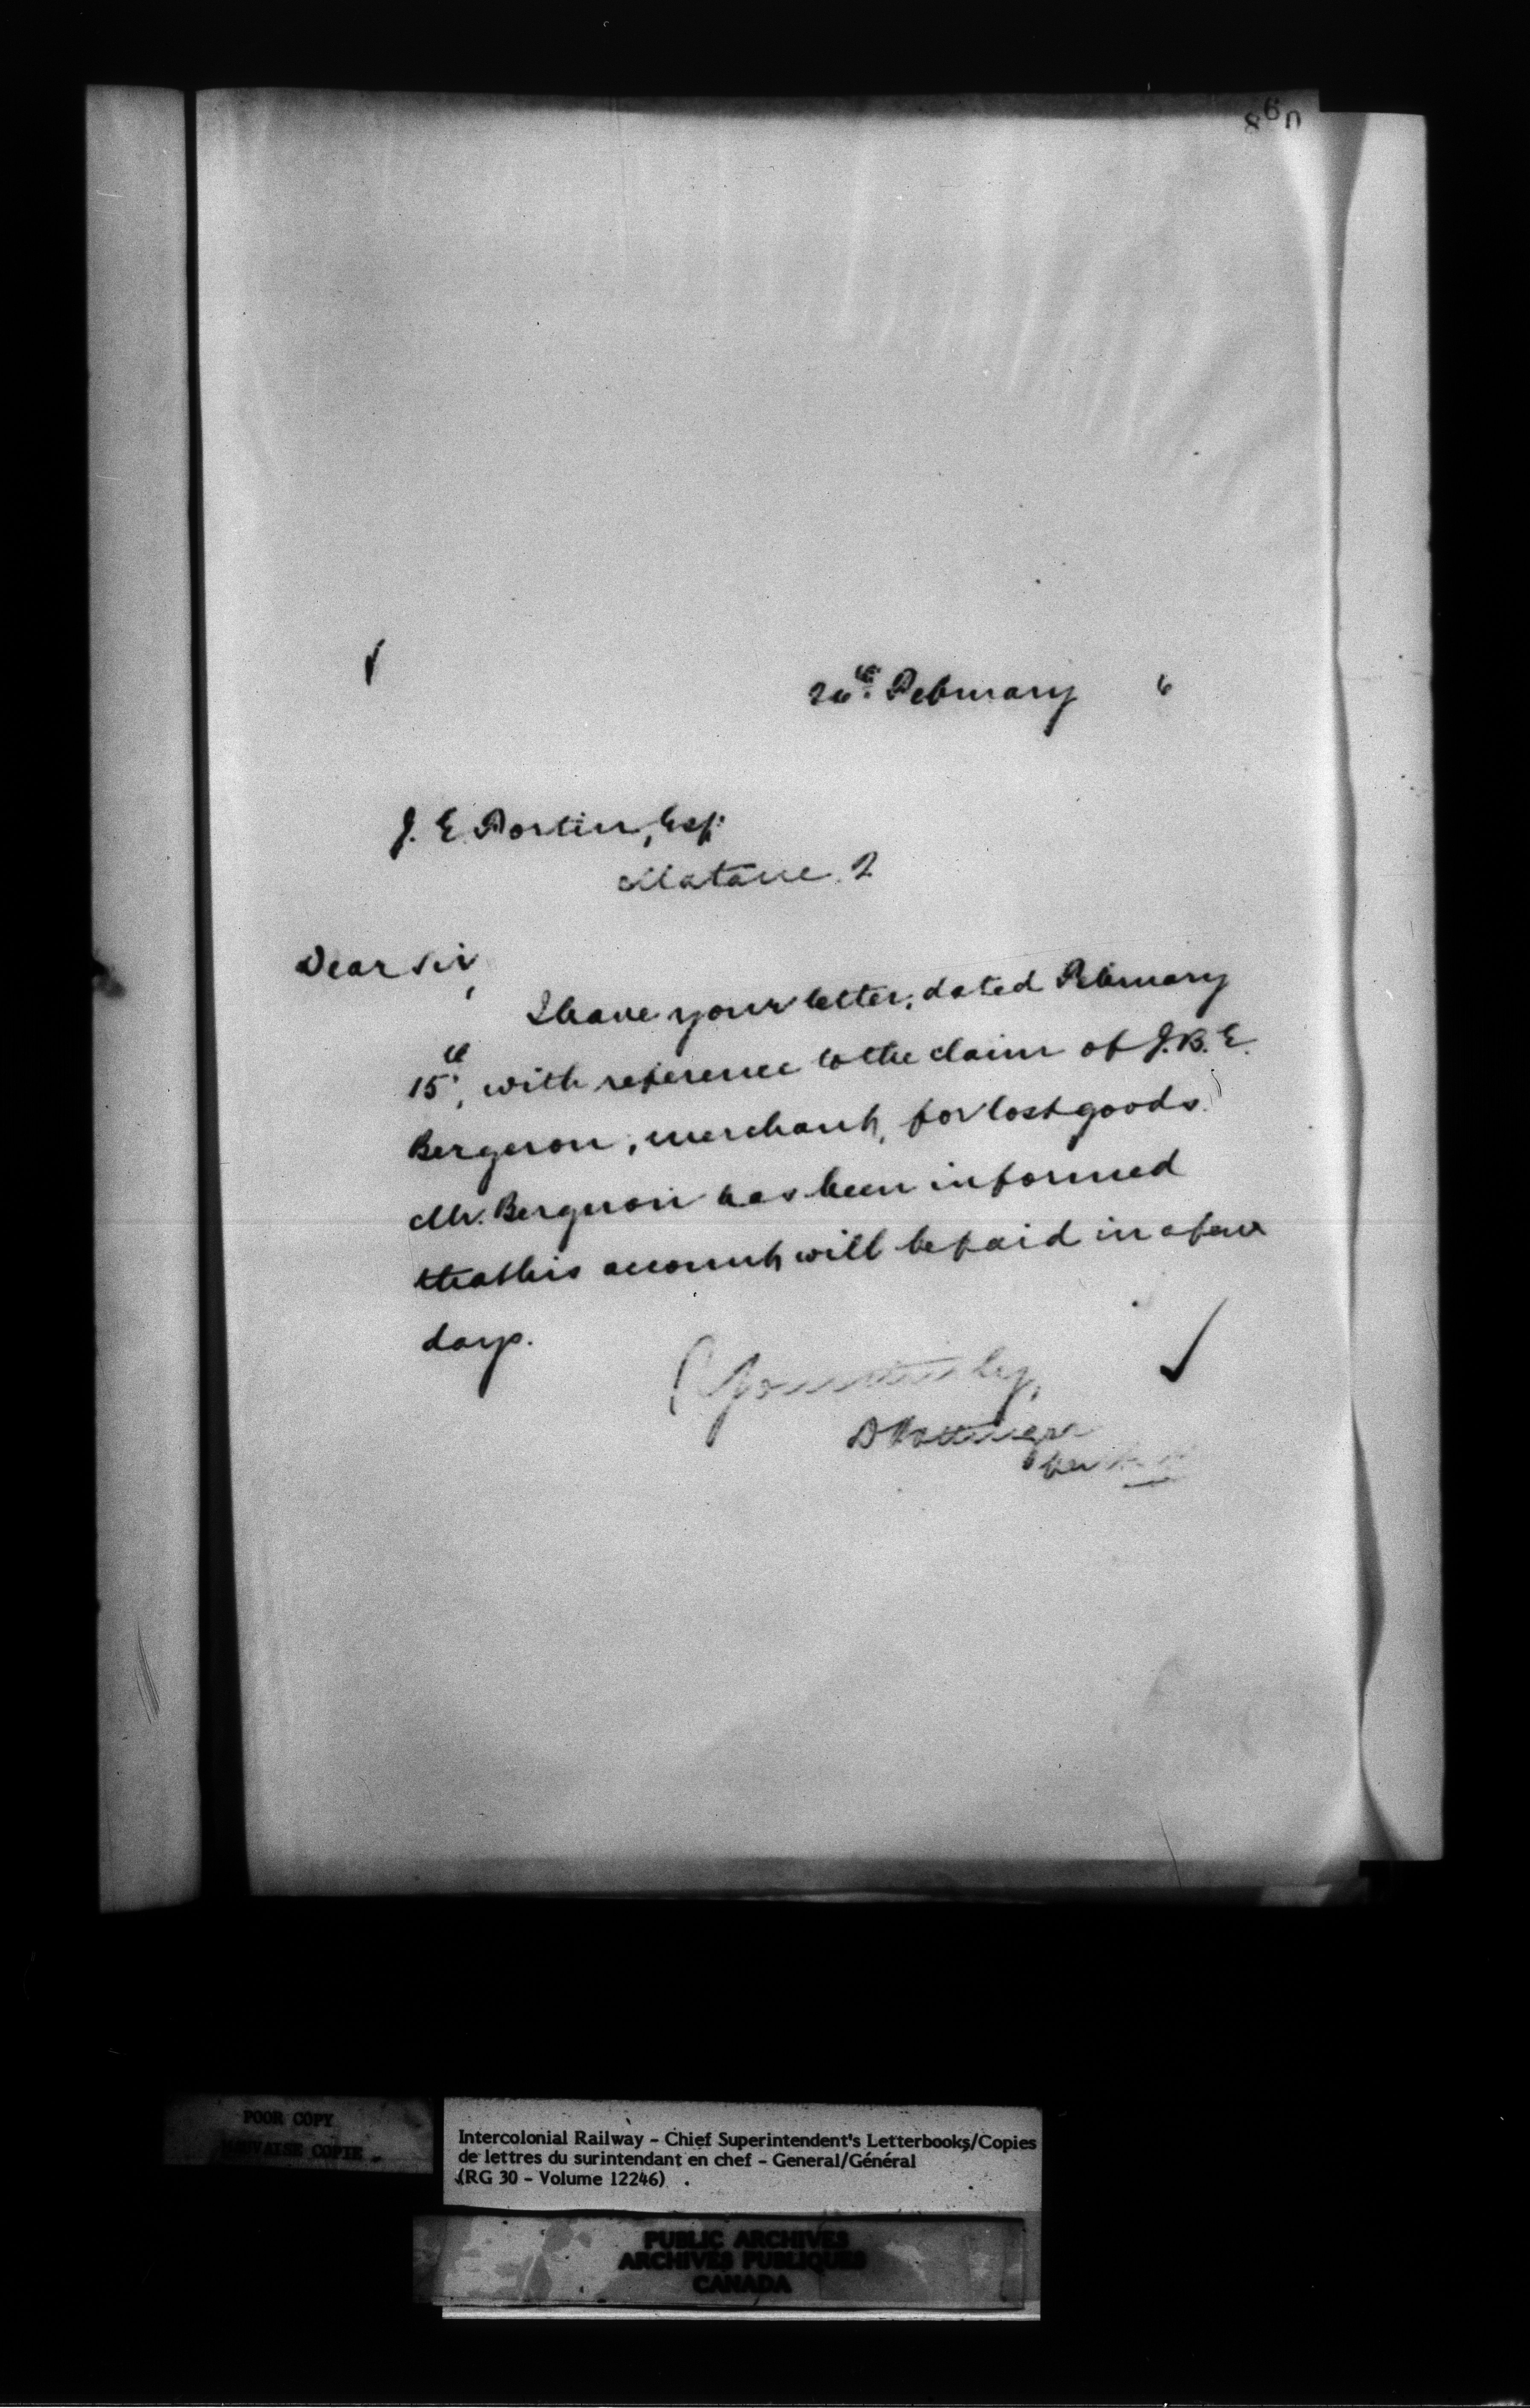 860
26th. February 6
J. E. Fortin, Esq.
Matane. 2
Dear Sir,
I have your letter, dated February
15th, with reference to the claim of J. B. E.
Bergeron, merchant, for lost goods.
Mr. Bergeron has been informed
that his account will be paid in a few
days.
Yours truly,
D Pottinger
POOR COPY
MAUVAISE COPIE
Intercolonial Railway - Chief Superintendent's Letterbooks/Copies
de lettres du surintendant en chef - General/Général
(RG 30 - Volume 12246)
PUBLIC ARCHIVES
ARCHIVES PUBLIQUES
CANADA